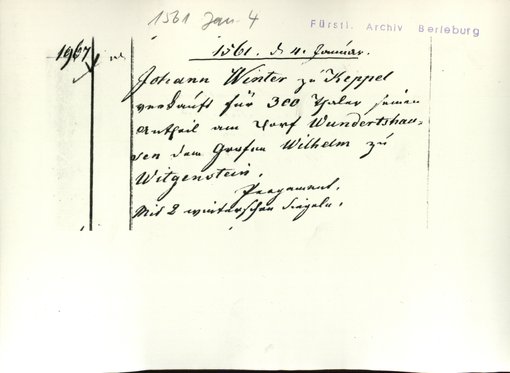 1561 Jan. 4
Fürstl. Archiv Berleburg
1967
1561. d. 4. Januar.
Johann Winter zu Keppel
verkauft für 300 Thaler seinen
Antheil am Dorf Wundertshau-
sen dem Grafen Wilhelm zu
Witgenstein.
Pergament.
Mit 2 winterschen Siegeln.